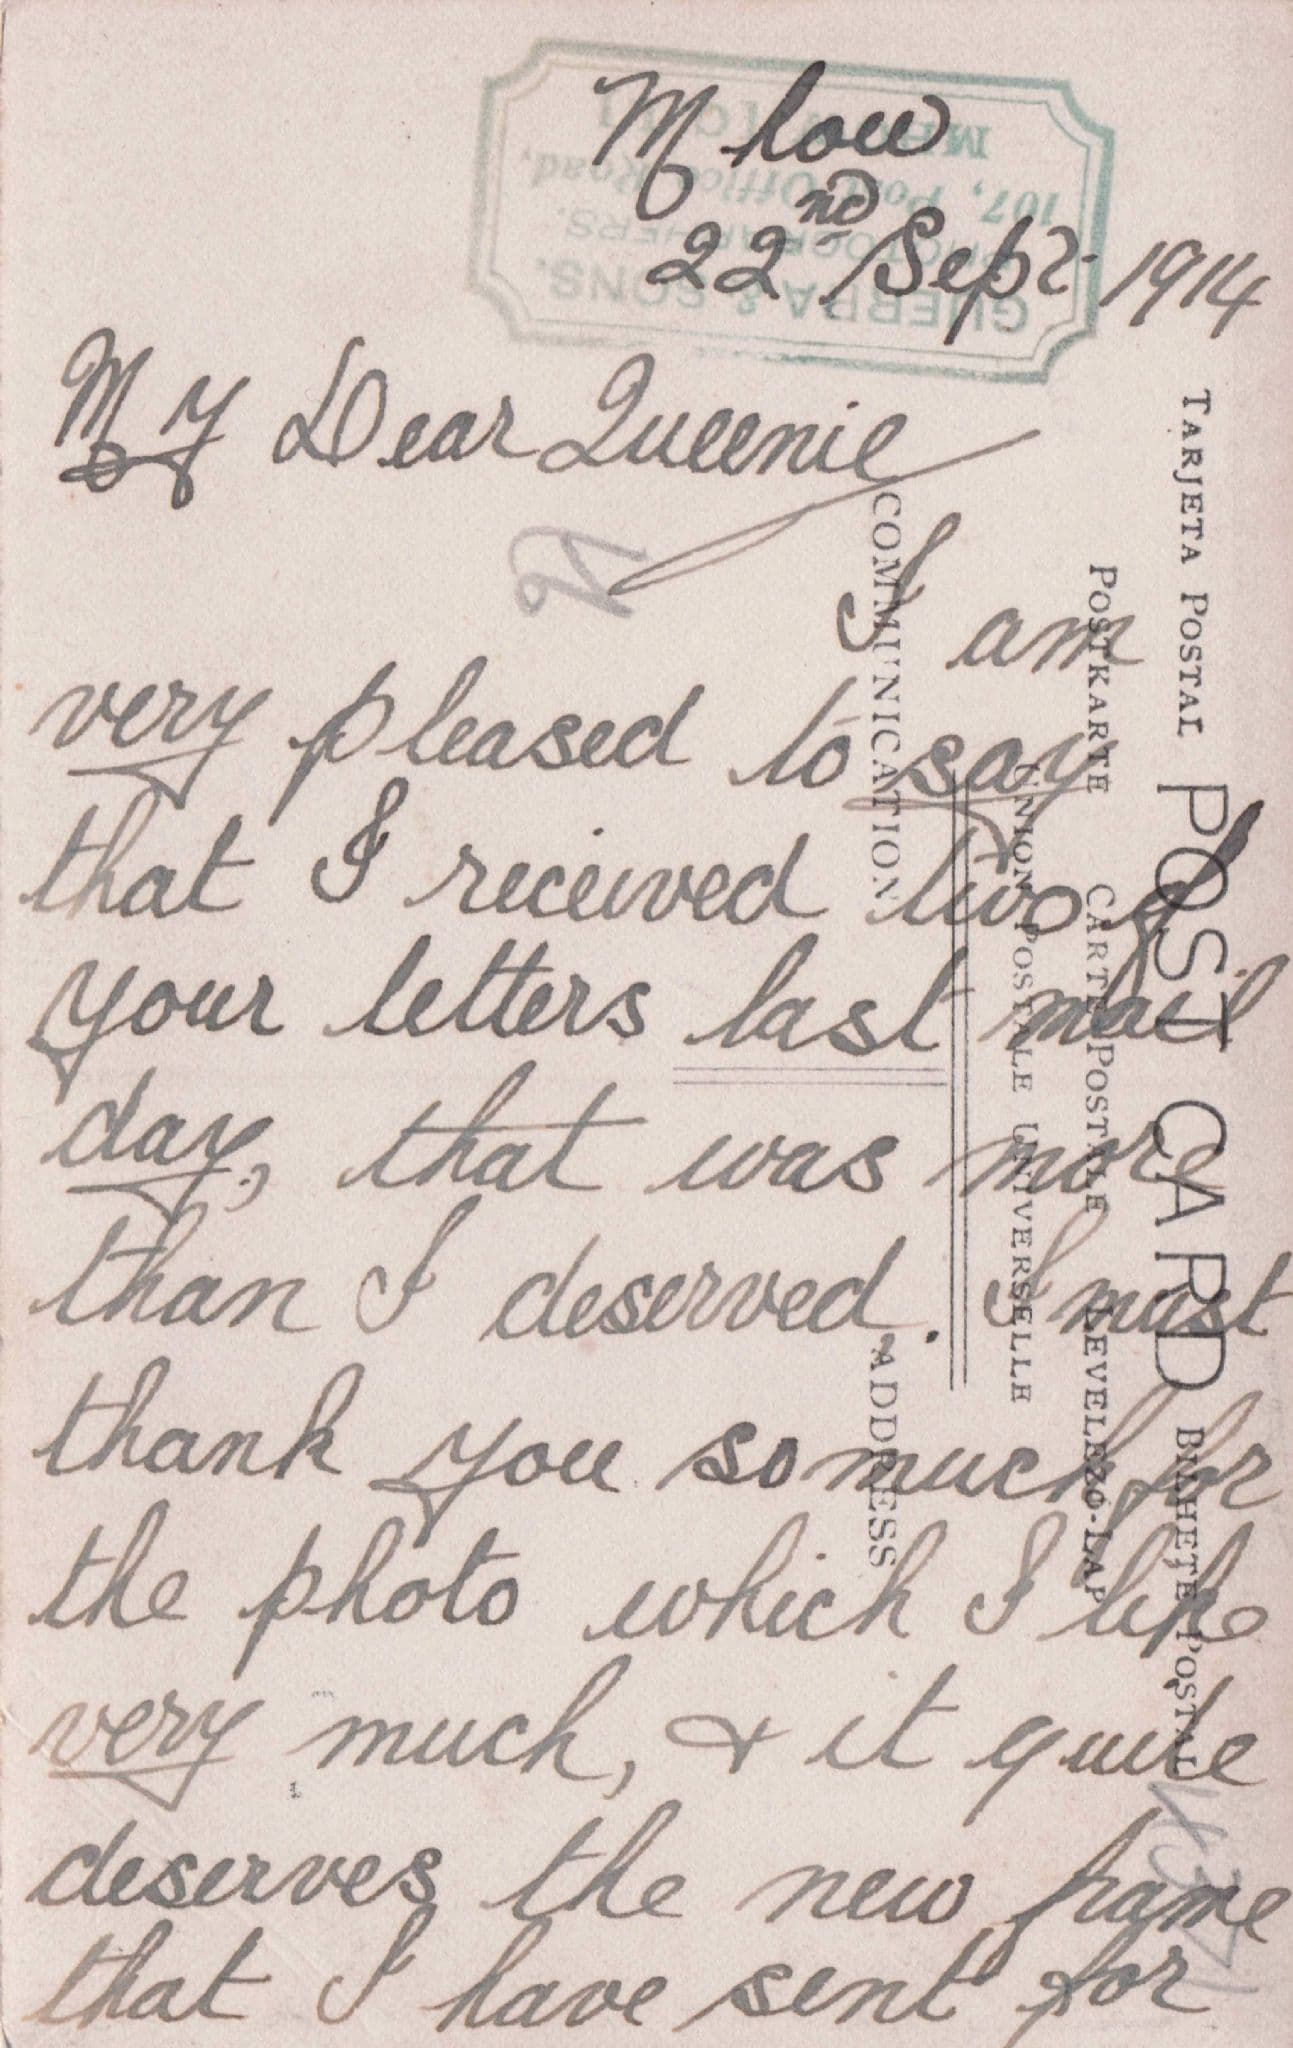 Mhow
22nd Sept. 1914
My Dear Queenie
I am
very pleased to say
that I received two of
your letters last mail
day, that was more
than I deserved. I must
thank you so much for
the photo which I like
very much, & it quite
deserves the new frame
that I have sent for
GUERRA & SONS.
PHOTOGRAPHERS.
107, Post Office Road,
MHOW [C. I.]
TARJETA POSTAL POST CARD BILHETE POSTAL
POSTKARTE CARTE POSTALE LEVELEZŐ-LAP
UNION POSTALE UNIVERSELLE
COMMUNICATION ADDRESS